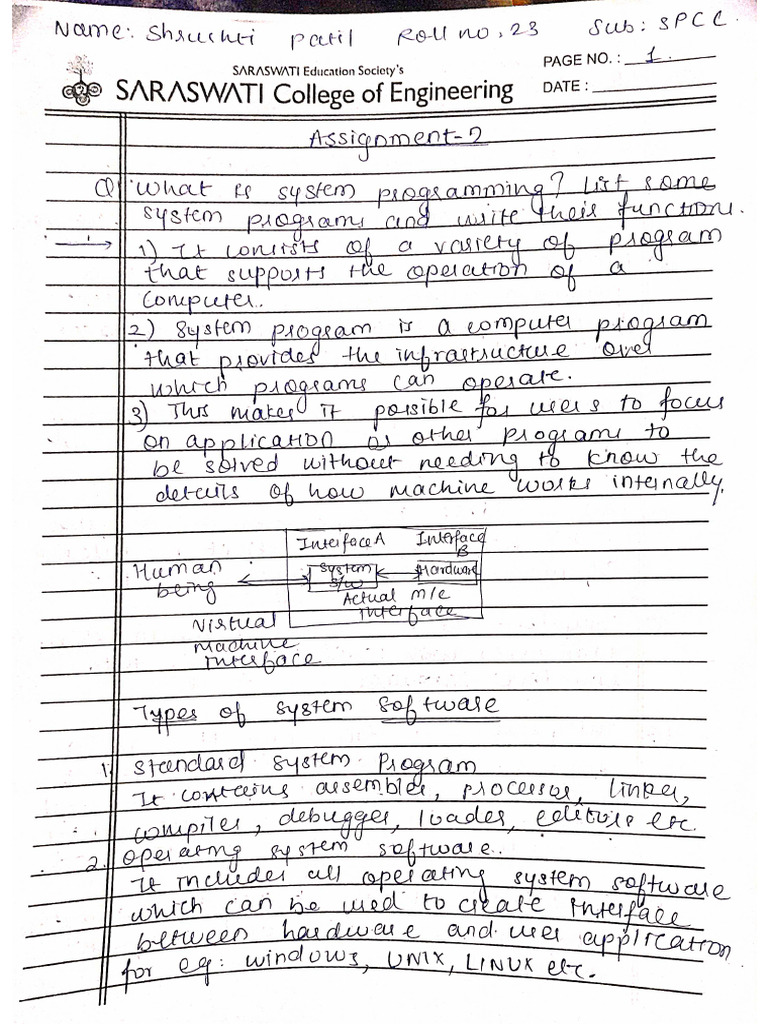 Name: Shrushti Patil Roll no. 23 Sub: SPCC.
SARASWATI Education Society's
SARASWATI College of Engineering
PAGE NO. : 1.
DATE :
Assignment-2
Q) What is system programming? List some
system programs and write their functions.
→ 1) It consists of a variety of program
that supports the operation of a
computer.
2) System program is a computer program
that provides the infrastructure over
which programs can operate.
3) This makes it possible for users to focus
on application or other programs to
be solved without needing to know the
details of how machine works internally.
Interface A Interface B
Human being
System S/W
Hardware
Actual m/c interface
Virtual
machine
interface
Types of system software
1. Standard system program
It contains assembler, processor, linker,
compiler, debugger, loader, editors etc.
2. Operating system software.
It includes all operating system software
which can be used to create interface
between hardware and user application
for eg: windows, UNIX, LINUX etc.